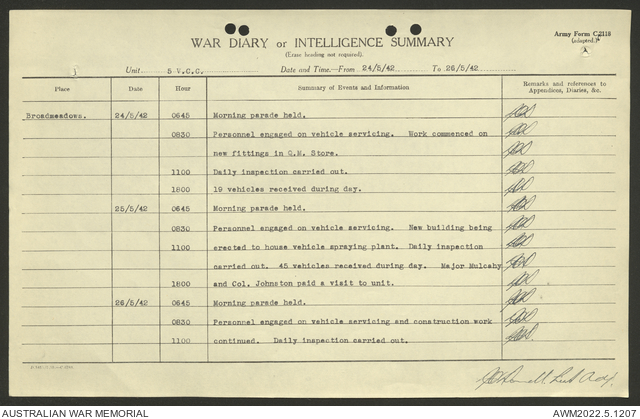 WAR DIARY or INTELLIGENCE SUMMARY
(Erase heading not required).
Army Form C.2118
(adapted.)
Unit 5 V.C.C. Date and Time.—From 24/5/42 To 26/5/42
Place Date Hour Summary of Events and Information Remarks and references to Appendices, Diaries, &c.
Broadmeadows. 24/5/42 0645 Morning parade held.
0830 Personnel engaged on vehicle servicing. Work commenced on
new fittings in Q.M. Store.
1100 Daily inspection carried out.
1800 19 vehicles received during day.
25/5/42 0645 Morning parade held.
0830 Personnel engaged on vehicle servicing. New building being
1100 erected to house vehicle spraying plant. Daily inspection
carried out. 45 vehicles received during day. Major Mulcahy
1800 and Col. Johnston paid a visit to unit.
26/5/42 0645 Morning parade held.
0830 Personnel engaged on vehicle servicing and construction work
1100 continued. Daily inspection carried out.
Lieut Adj.
AUSTRALIAN WAR MEMORIAL AWM2022.5.1207